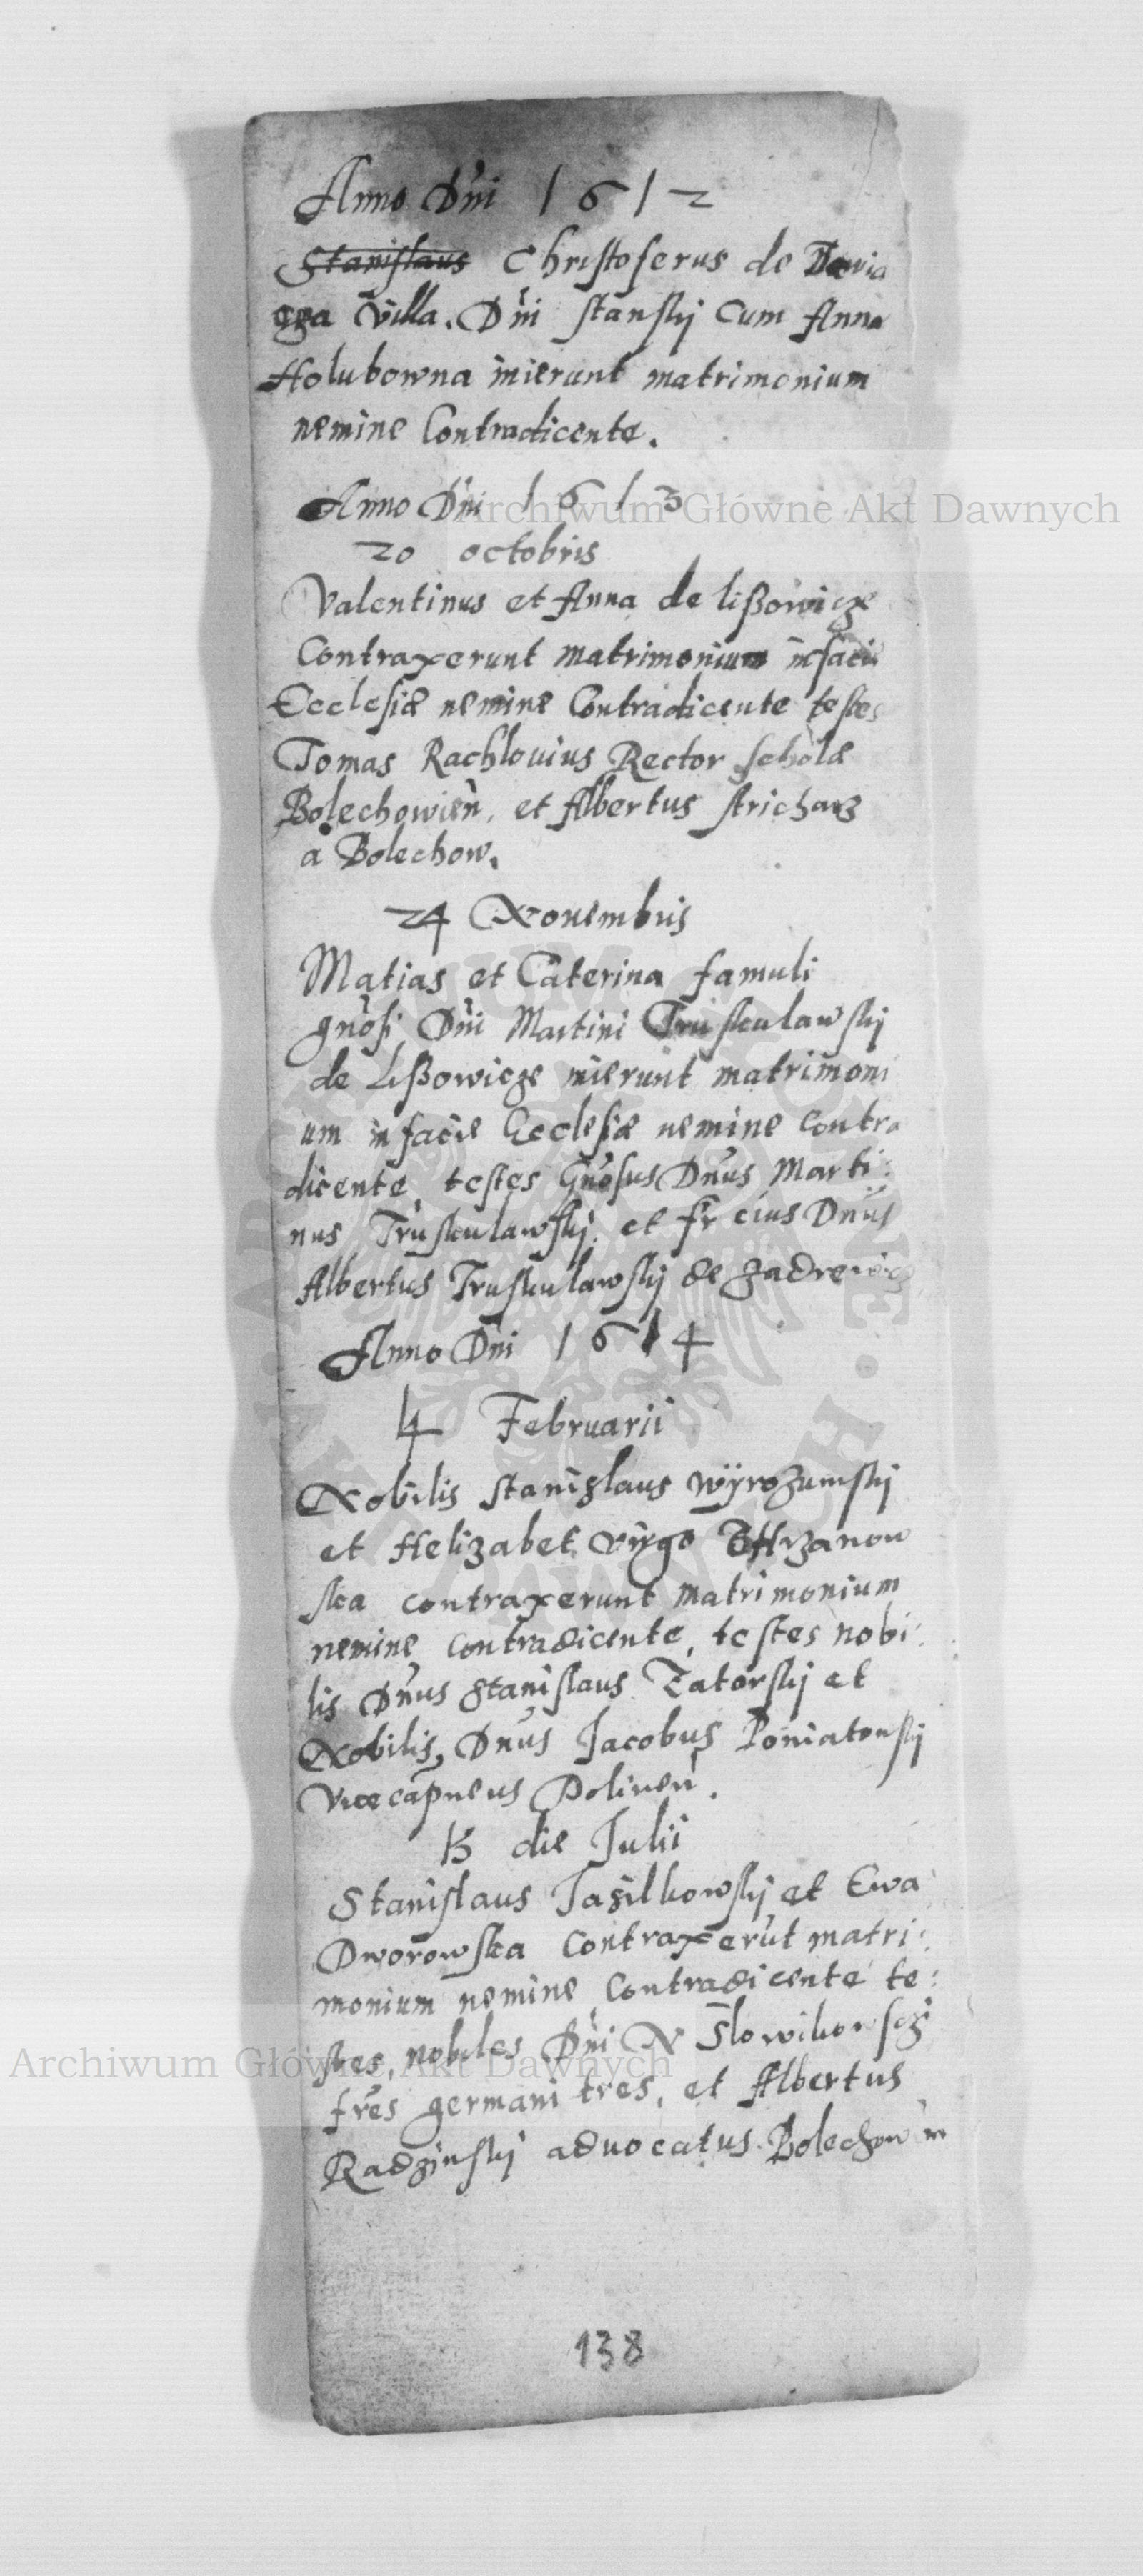 Anno Dñi 1612
Stanislaus Christoferus de
Villa. Dñi stanskij Cum Anna
Holubowna inierunt matrimonium
nemine Contradicente.
Anno Dñi 1613
Archiwum Główne Akt Dawnych
20 octobris
Valentinus et Anna de lißowicze
Contraxerunt matrimonium in facie
Ecclesiæ nemine Contradicente testes
Tomas Rachlouius Rector scholæ
Bolechowień. et Albertus stricharz
a Bolechow.
24 Nouembris
Matias et Caterina famuli
gnosi Dñi Martini Truskulawskij
de Lißowicze inierunt matrimoni
um in facie Ecclesiæ nemine contra
dicente, testes Gnosus Dnus Marti:
nus Truskulawskij. et fr eius Dnus
Albertus Truskulawskij de
Anno Dñi 1614
4 Februarii
Nobilis stanislaus wÿrozumskij
et Helizabet virgo
ska contraxerunt matrimonium
nemine contradicente, testes nobi:
lis Dnus Stanislaus Zatorskij et
Nobilis, Dnus Jacobus Poniatouskij
Vicecapneus Dolineń.
13 die Julii
Stanislaus Jasilkowskij et Ewa
Dworowska contraxerūt matri:
monium nemine Contradicente te:
stes, nobiles Dñi N Slowikowsczi
Archiwum Główne Akt Dawnych
fres germani tres, et Albertus
Radzinskij aduocatus
138